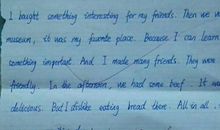 I bought something interesting for my friends. Then we w
museum, it was my favorite place. Because I can learn
something important. And I made many friends. They were
friendly. In the afternoon, we had some beef. It was
delicious. But I dislike eating bread there. All in all,